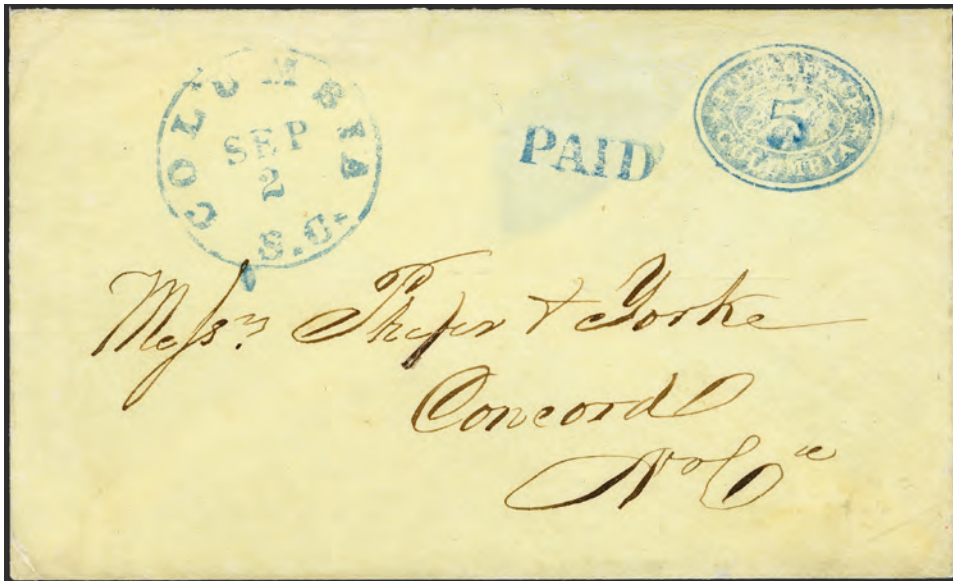 COLUMBIA
SEP
2
S.C.
PAID
POST OFFICE
5
COLUMBIA
Messrs Phifer & Yorke
Concord
No Ca